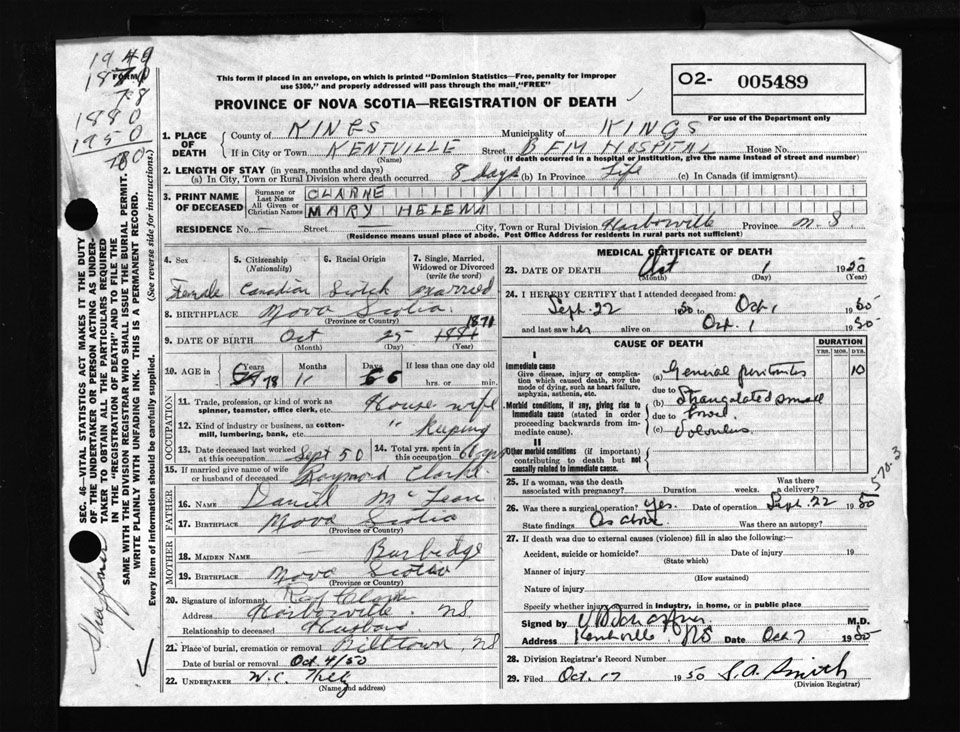 1949
1871
78
1880
1950
70
FORM
This form if placed in an envelope, on which is printed "Dominion Statistics—Free, penalty for improper
use $300," and properly addressed will pass through the mail "FREE"
PROVINCE OF NOVA SCOTIA—REGISTRATION OF DEATH
O2- 005489
For use of the Department only
1. PLACE OF DEATH
County of KINGS Municipality of KINGS
If in City or Town KENTVILLE Street B F M HOSPITAL House No.
(Name) (If death occurred in a hospital or institution, give the name instead of street and number)
2. LENGTH OF STAY (in years, months and days)
(a) In City, Town or Rural Division where death occurred 8 days (b) In Province Life (c) In Canada (if immigrant)
3. PRINT NAME OF DECEASED
Surname or Last Name CLARKE
All Given or Christian Names MARY HELENN
RESIDENCE No. — Street — City, Town or Rural Division Harborville Province N.S.
(Residence means usual place of abode. Post Office Address for residents in rural parts not sufficient)
4. Sex 5. Citizenship (Nationality) 6. Racial Origin 7. Single, Married, Widowed or Divorced (write the word)
Female Canadian Scotch married
8. BIRTHPLACE Nova Scotia
(Province or Country)
1871
9. DATE OF BIRTH Oct 25 1881
(Month) (Day) (Year)
10. AGE in Years Months Days If less than one day old
78 11 6 hrs. or min.
OCCUPATION
11. Trade, profession, or kind of work as spinner, teamster, office clerk, etc. House wife
12. Kind of industry or business, as cotton-mill, lumbering, bank, etc. " Keeping
13. Date deceased last worked at this occupation Sept 50
14. Total yrs. spent in this occupation 60 yrs
15. If married give name of wife or husband of deceased Raymond Clarke
FATHER
16. NAME Daniel McLean
17. BIRTHPLACE Nova Scotia
(Province or Country)
MOTHER
18. MAIDEN NAME — Burbidge
19. BIRTHPLACE Nova Scotia
(Province or Country)
20. Signature of informant Ray Clarke
Address Harborville. NS
Relationship to deceased Husband
21. Place of burial, cremation or removal Billtown, NS
Date of burial or removal Oct 4/50
22. UNDERTAKER W.C.
(Name and address)
MEDICAL CERTIFICATE OF DEATH
23. DATE OF DEATH Oct 1 1950
(Month) (Day) (Year)
24. I HEREBY CERTIFY that I attended deceased from:
Sept. 22 1950 to Oct. 1 1950
and last saw her alive on Oct. 1 1950
CAUSE OF DEATH DURATION
YRS. MOS. DYS.
I
Immediate cause
Give disease, injury or complication which caused death, NOT the mode of dying, such as heart failure, asphyxia, asthenia, etc.
(a) General peritonitis 10
due to
Morbid conditions, if any, giving rise to immediate cause (stated in order proceeding backwards from immediate cause).
(b) Strangulated small
due to bowel
(c) Volvulus.
II
Other morbid conditions (if important) contributing to death but not causally related to immediate cause.
570.3
25. If a woman, was the death associated with pregnancy? Duration weeks. Was there a delivery?
26. Was there a surgical operation? yes. Date of operation Sept. 22 1950
State findings As above Was there an autopsy?
27. If death was due to external causes (violence) fill in also the following:—
Accident, suicide or homicide? Date of injury 19
(State which)
Manner of injury
(How sustained)
Nature of injury
Specify whether injury occurred in industry, in home, or in public place
Signed by M.D.
Address Kentville NS Date Oct 7 1950
28. Division Registrar's Record Number
29. Filed Oct. 17 1950 S.A. Smith
(Division Registrar)
SEC. 46—VITAL STATISTICS ACT MAKES IT THE DUTY
OF THE UNDERTAKER OR PERSON ACTING AS UNDER-
TAKER TO OBTAIN ALL THE PARTICULARS REQUIRED
IN THE "REGISTRATION OF DEATH" AND TO FILE THE
SAME WITH THE DIVISION REGISTRAR WHO SHALL ISSUE THE BURIAL PERMIT.
WRITE PLAINLY WITH UNFADING INK. THIS IS A PERMANENT RECORD.
Every item of information should be carefully supplied. (See reverse side for instructions.)